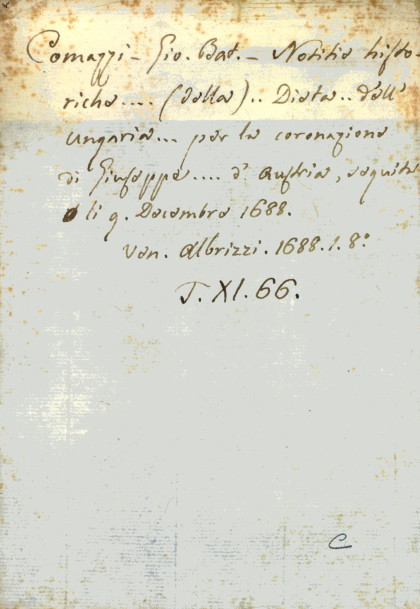 Comazzi - Gio. Bat. - Notitie histo-
riche .... (della) .. Dieta .. dell'
Ungaria ... per la coronazione
di Giuseppe .... d' Austria, seguita
li 9. Decembre 1688.
Ven. Albrizzi. 1688. 1. 8.º
T. XI. 66.
C